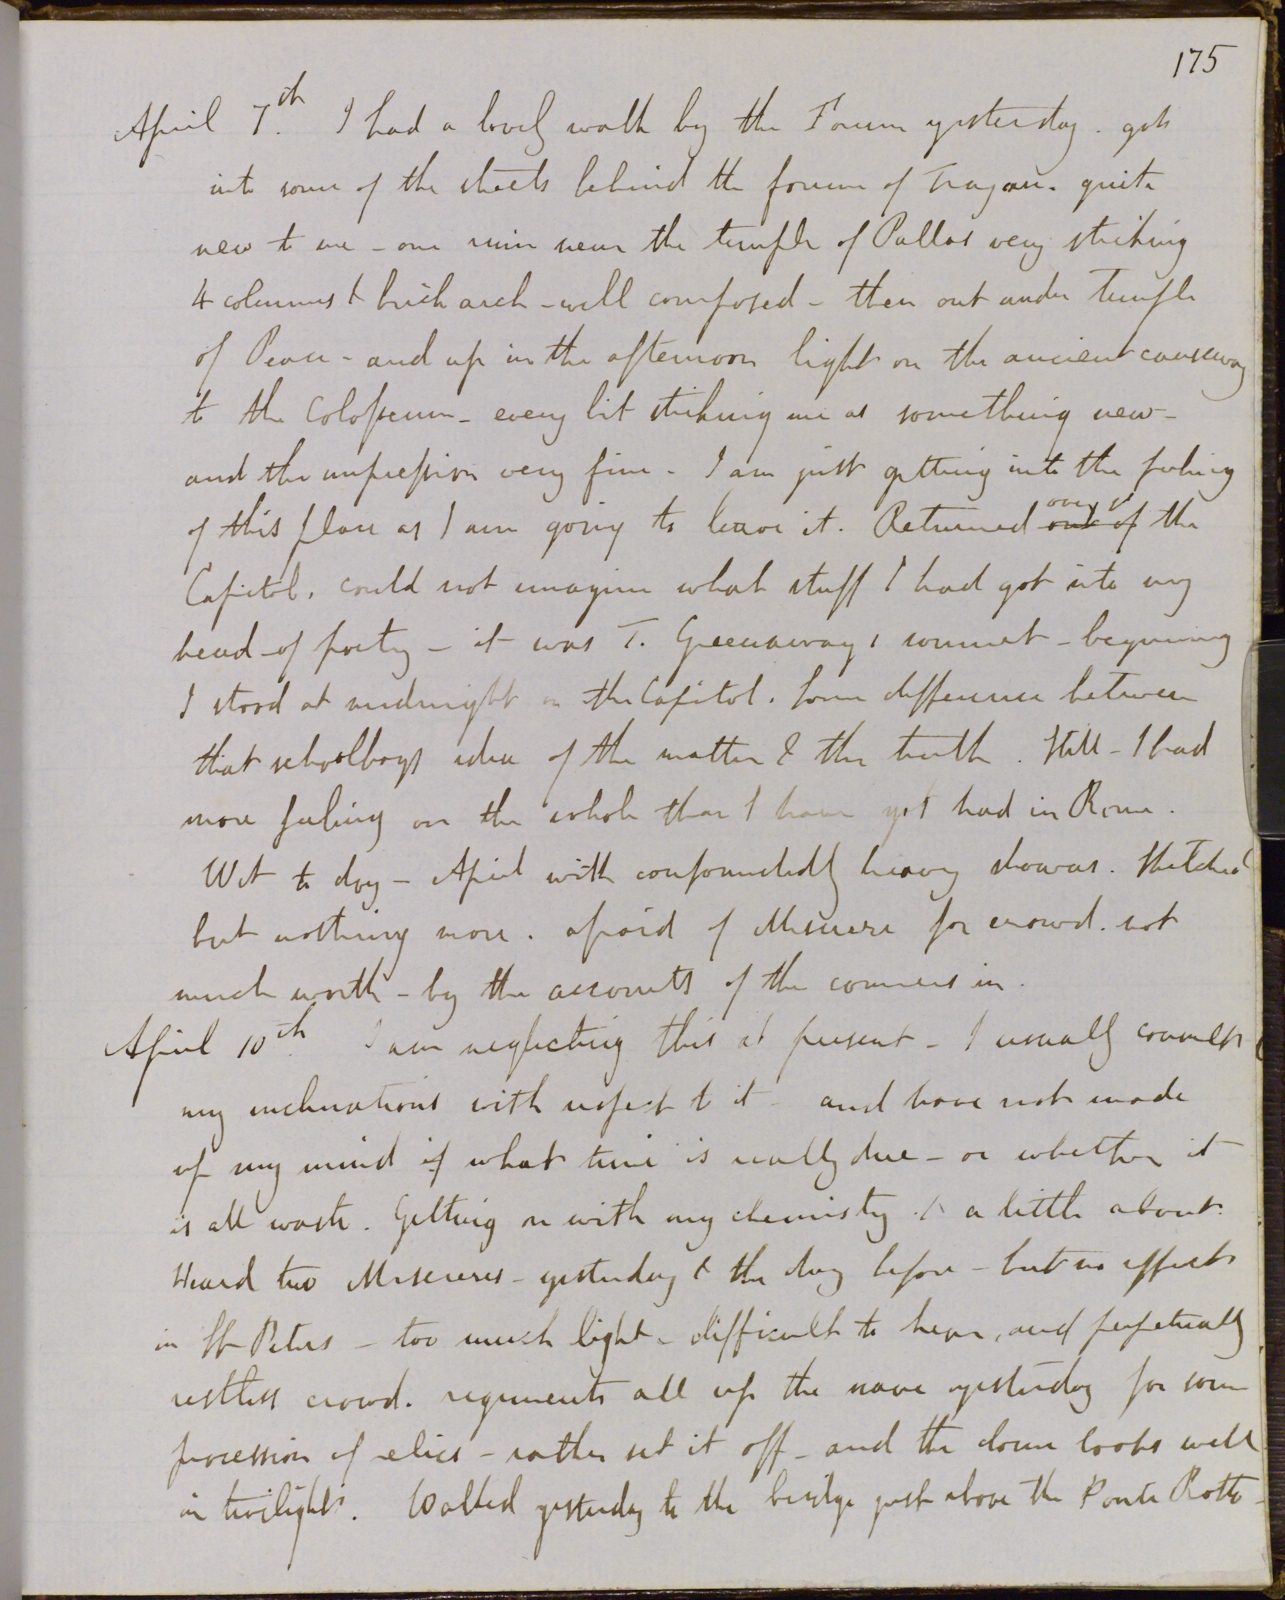 175
April 7th. I had a lovely walk by the Forum yesterday. got
into some of the streets behind the forum of Trajan. quite
new to me - one ruin near the temple of Pallas very striking
4 columns & brick arch - well composed - then out under Temple
of Peace - and up in the afternoon light on the ancient causeway
to the Colosseum - every bit striking me as something new -
and the impression very fine - I am just getting into the feeling
of this place as I am going to leave it. Returned over out of the
Capitol. could not imagine what stuff I had got into my
head - of poetry - it was T. Greenaways sonnet - beginning
I stood at midnight on the Capitol. Some difference between
that schoolboys idea of the matter & the truth. Still - I had
more feeling on the whole than I have yet had in Rome.
Wet to day - April with confoundedly heavy showers. Sketched
but nothing more. afraid of Miserere for crowd. not
much worth - by the accounts of the comers in.
April 10th. I am neglecting this at present - I usually consult
my inclinations with respect to it - and have not made
up my mind if what time is really due - or whether it
is all waste. Getting on with my chemistry & a little about.
Heard two Misereres - yesterday & the day before - but no effect
in St Peters - too much light - difficult to hear, and perpetually
restless crowd. regiments all up the nave yesterday for some
procession of relics - rather set it off - and the dome looks well
in twilight. Walked yesterday to the bridge just above the Ponte Rotto -